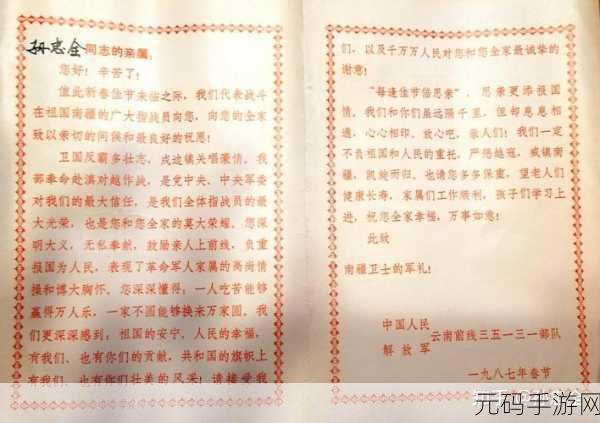 孙志全同志的亲属:
您好!辛苦了!
值此新春佳节来临之际,我们代表战斗
在祖国南疆的广大指战员向您,向您的全家
致以亲切的问候和最良好的祝愿!
卫国反霸多壮志,戍边镇关唱豪情。我
部奉命赴滇对越作战,是党中央、中央军委
对我们的最大信任,是我们全体指战员的最
大光荣,也是您和您全家的莫大荣耀。您深
明大义,无私奉献,鼓励亲人上前线,负重
报国为人民,表现了革命军人家属的高尚情
操和博大胸怀。您深深懂得:一人吃苦能够
赢得万人乐,一家不圆能够换来万家圆。我
们更深深感到:祖国的安宁、人民的幸福,
有我们、也有你们的贡献,共和国的旗帜上
有我们、也有你们壮美的风采!请接受我
们,以及千万万人民对您和您全家最诚挚的
谢意!
“每逢佳节倍思亲”,思亲更添报国
情。我们和你们虽远隔千里,但却息息相
通,心心相印。放心吧,亲人们!我们一定
不负祖国和人民的重托,严惩越寇,威镇南
疆,凯旋而归。也请您多多保重,望老人们
健康长寿,家属们工作顺利,孩子们学习上
进,祝您全家幸福,万事如意!
此致
南疆卫士的军礼!
中国人民
解放军
云南前线三五一三一部队
一九八七年春节
元码手游网